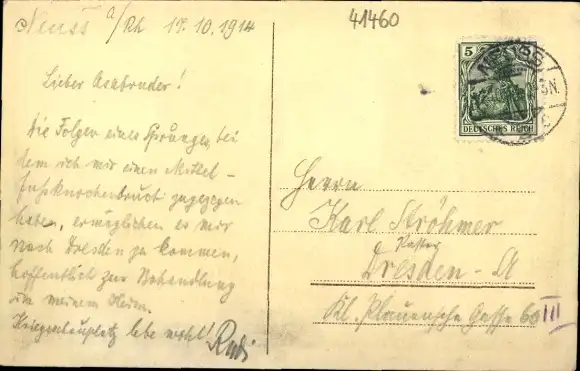 Neuss a/Rh 15.10.1914
41460
Lieber Asabruder!
Die Folgen eines Sprunges, bei
dem ich mir einen Mittel-
fußknochenbruch zugezogen
haben, ermöglichen es mir
nach Dresden zu kommen,
hoffentlich zur Behandlung
in meinem Heim.
Kriegsschauplatz lebe wohl!
Rudi
5
DEUTSCHES REICH
NEUSS
Herrn
Karl Ströhmer
Dresden-A
Kl. Plauensche Gasse 60 III